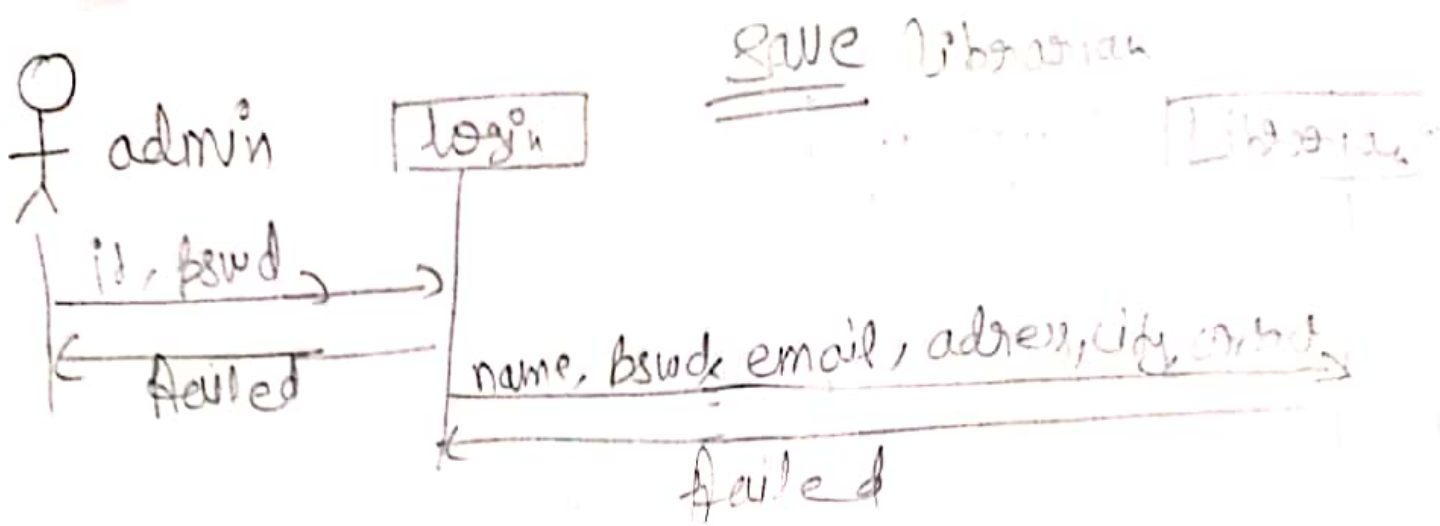 save librarian
admin
login
Librarian
id, pswd
failed
name, pswd, email, adress, city,
failed